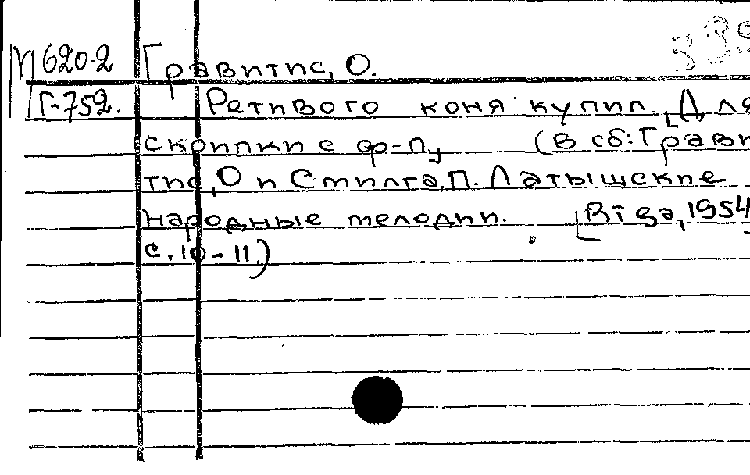 М620-2 Гравитис, О.
Г-752. Ретивого коня купил. [Для
скрипки с ф-п., (В сб: Грави
тис, О и Стилга, П. Латышские
народные мелодии. [Rīga, 1954,
с. 10-11.)